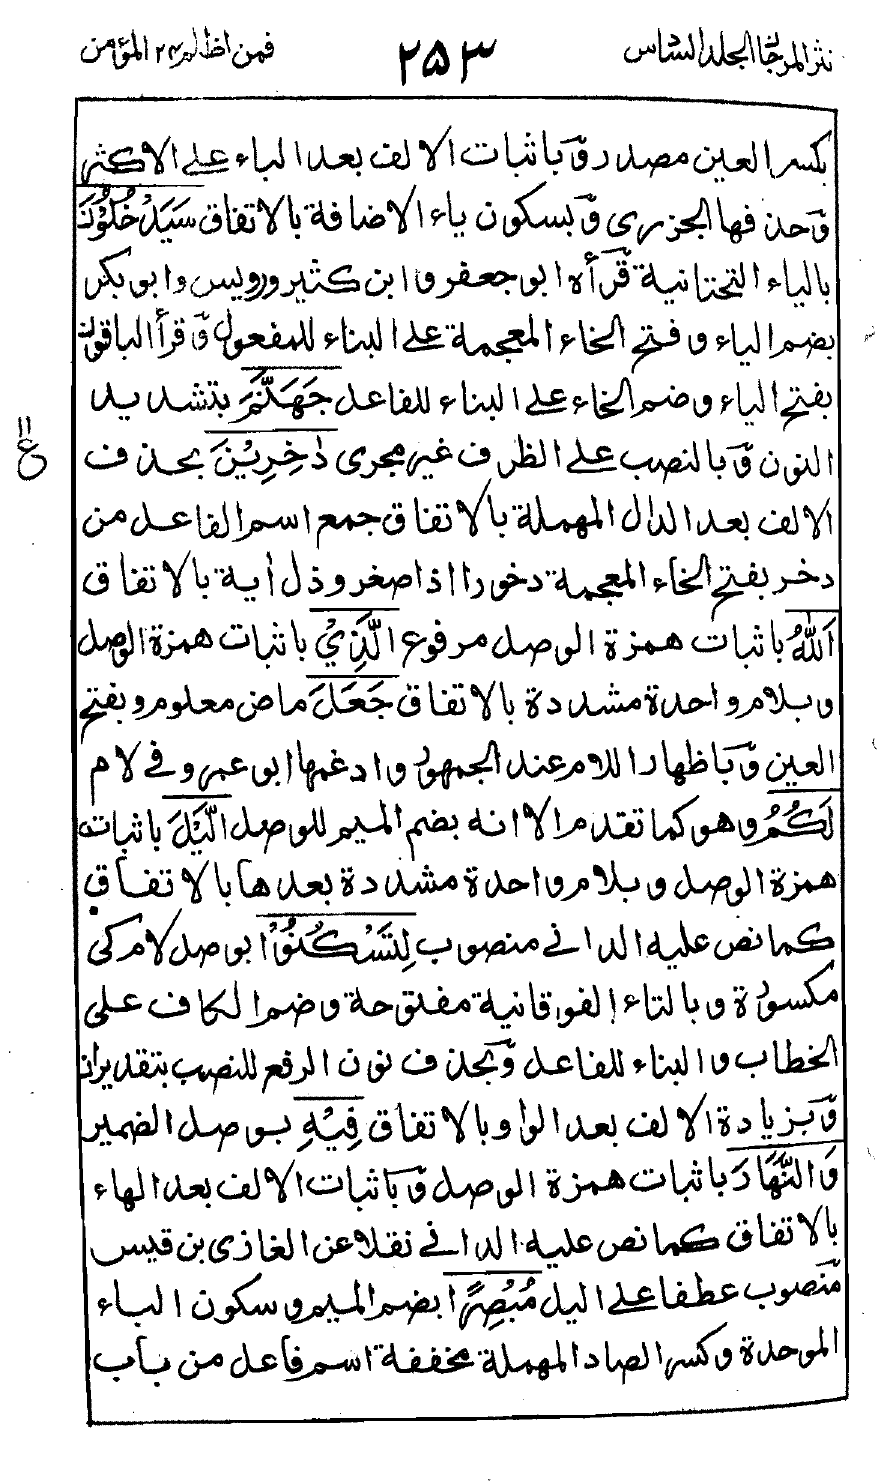 نثر المرجان الجلد السادس
٢٥٣
فمن اظلم ٢٤ المؤمن
بكسر العين مصدر وَّ باثبات الالف بعد الباء على الاكثر
وَّحذفها الجزرى وَّ بسكون ياء الاضافة بالاتفاق سَيَدْخُلُوْنَ
بالياء التحتانية قرأه ابو جعفر وابن كثير ورويس وابو بكر
بضم الياء وفتح الخاء المعجمة على البناء للمفعول وَّ قرأ الباقون
بفتح الياء وضم الخاء على البناء للفاعل جَهَنَّمَ بتشديد
النون وَّ بالنصب على الظرف غير مجرى دٰخِرِيْنَ بحذف
الالف بعد الدال المهملة بالاتفاق جمع اسم الفاعل من
دخر بفتح الخاء المعجمة دخورا اذا صغر وذل اٰية بالاتفاق
اَللّٰهُ باثبات همزة الوصل مرفوع الَّذِيْ باثبات همزة الوصل
وبلام واحدة مشددة بالاتفاق جَعَلَ ماض معلوم وبفتح
العين وَّ باظهار اللام عند الجمهور وادغمها ابو عمرو في لام
لَكُمُ وهو كما تقدم الا انه بضم الميم للوصل الَّيْلَ باثبات
همزة الوصل وبلام واحدة مشددة بعدها بالاتفاق
كما نص عليه الداني منصوب لِتَسْكُنُوْا بوصل لام كي
مكسورة وبالتاء الفوقانية مفتوحة وضم الكاف على
الخطاب والبناء للفاعل وَّبحذف نون الرفع للنصب بتقدير ان
وَّ بزيادة الالف بعد الواو بالاتفاق فِيْهِ بوصل الضمير
وَالنَّهَارَ باثبات همزة الوصل وَّ باثبات الالف بعد الهاء
بالاتفاق كما نص عليه الداني نقلا عن الغازى بن قيس
منصوب عطفا على اليل مُبْصِرًا بضم الميم وسكون الباء
الموحدة وكسر الصاد المهملة مخففة اسم فاعل من باب
١١
ع